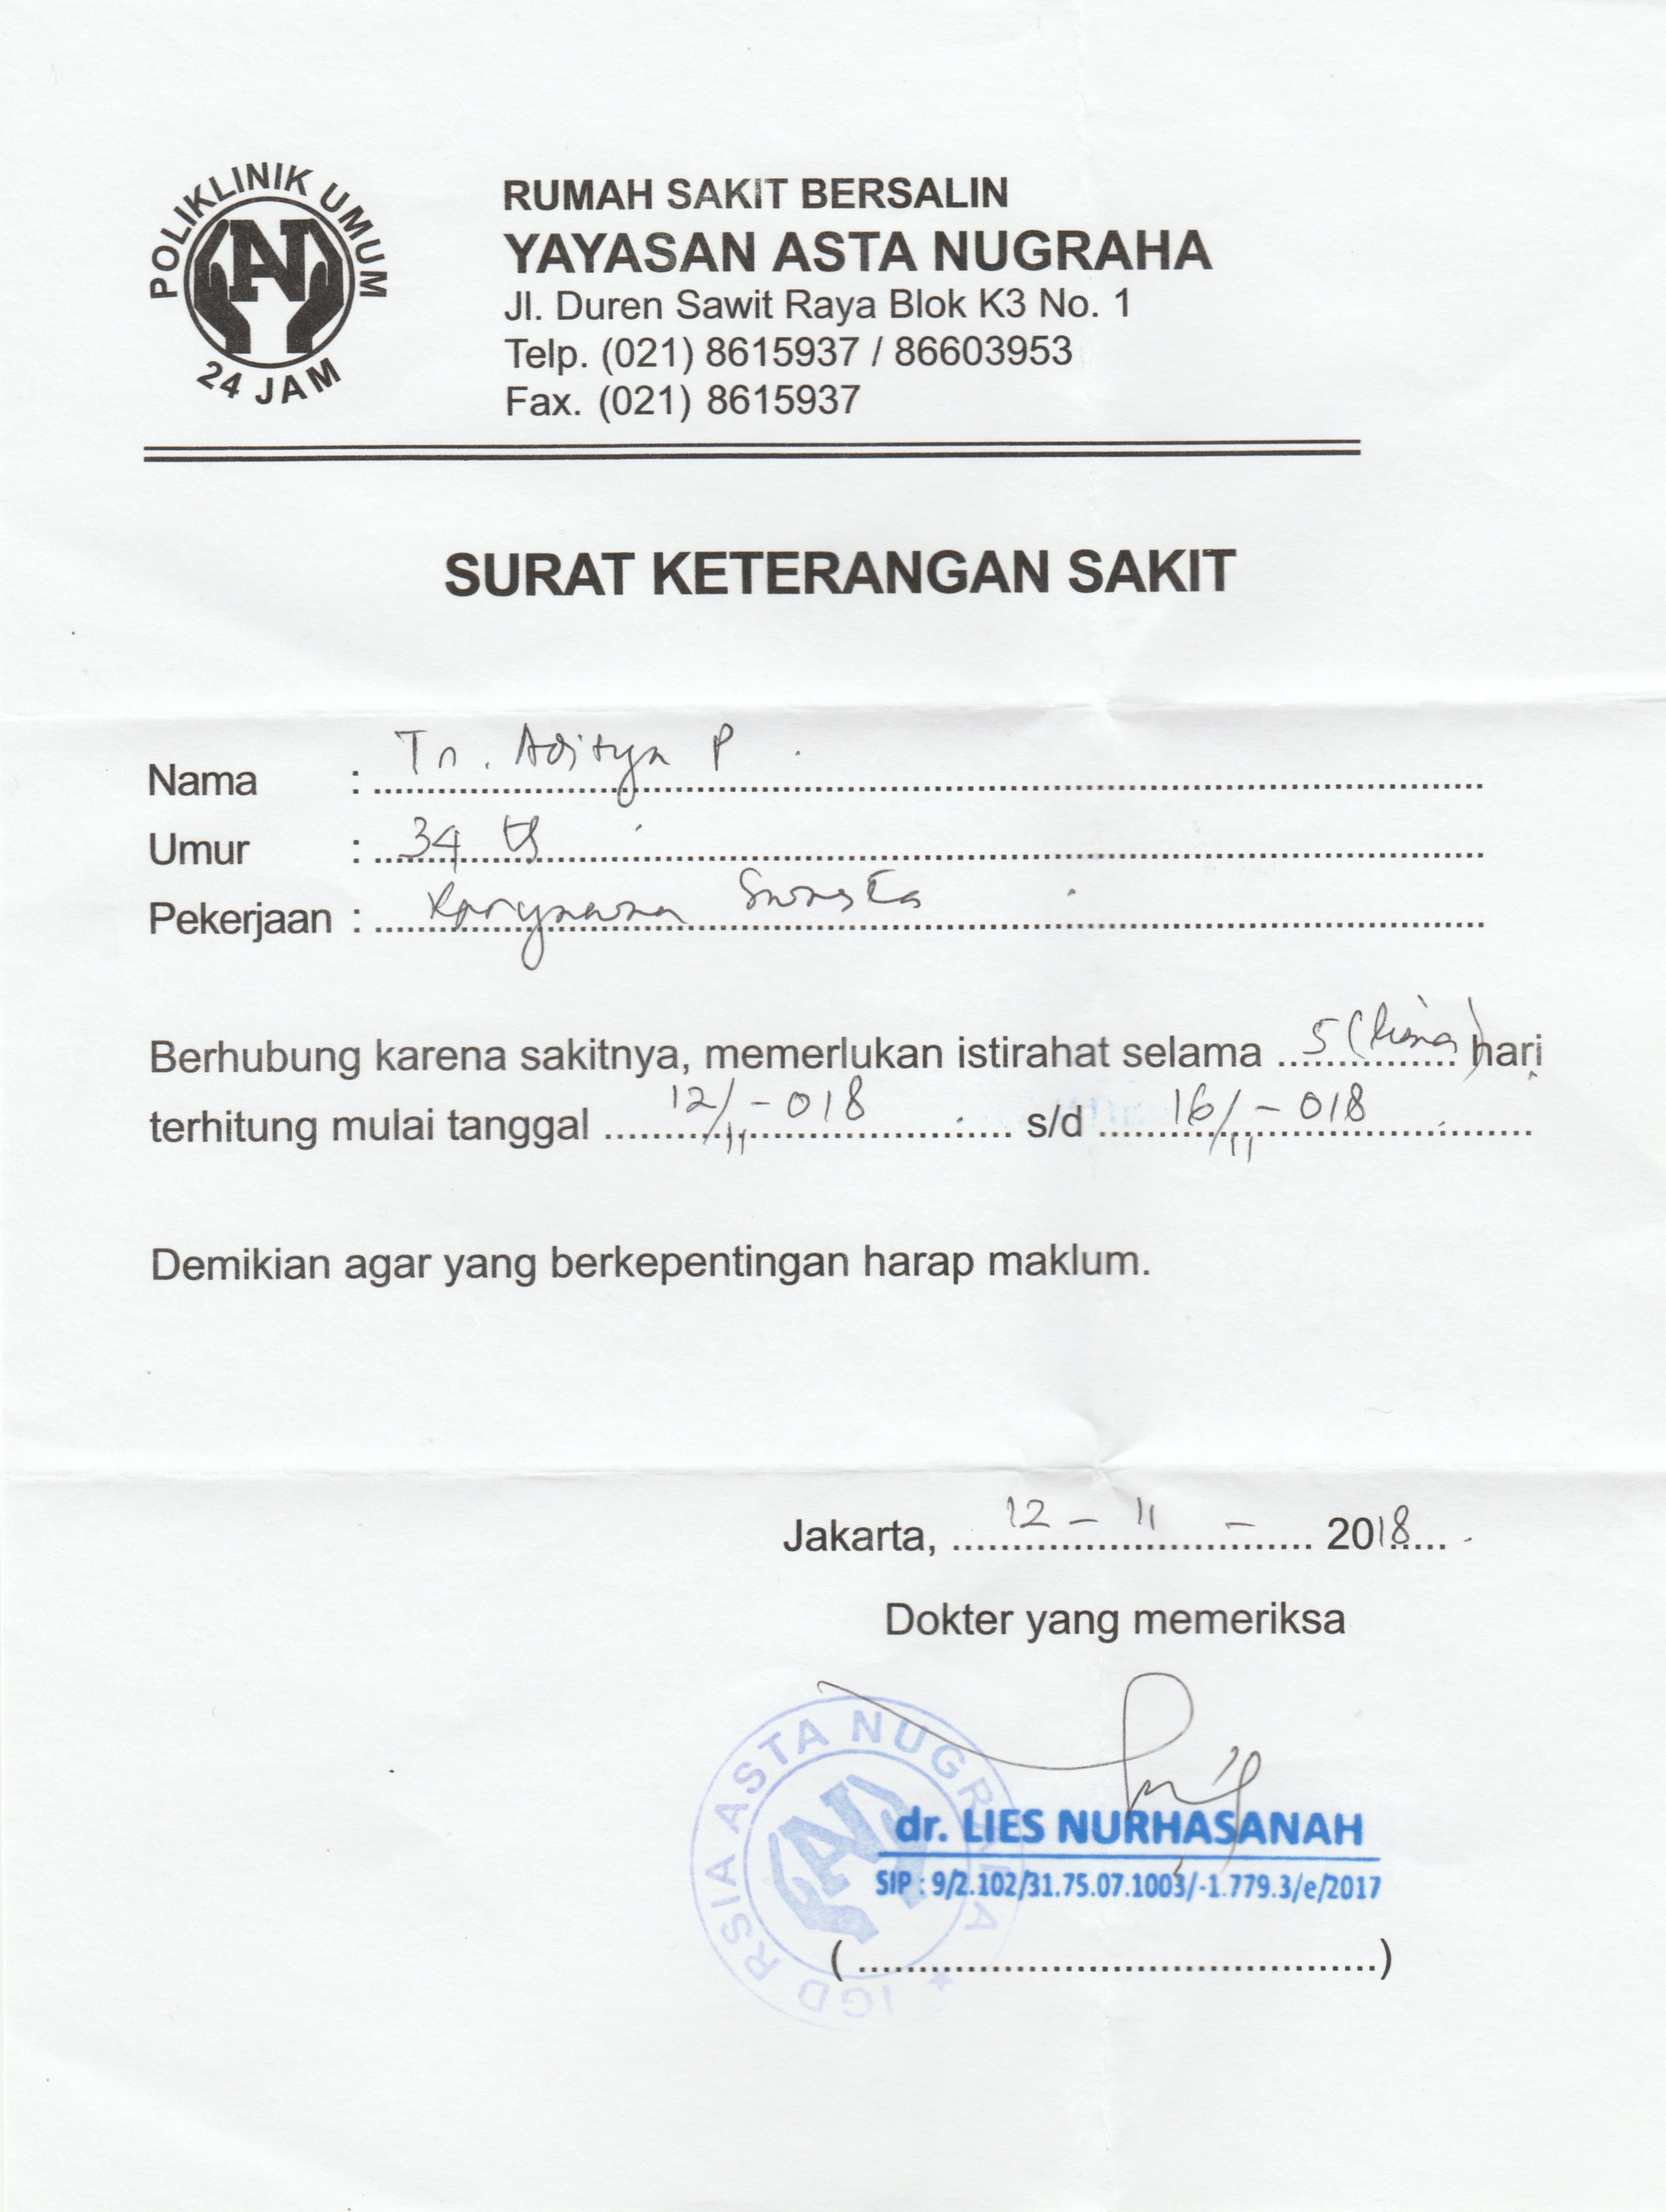 POLIKLINIK UMUM
24 JAM
RUMAH SAKIT BERSALIN
YAYASAN ASTA NUGRAHA
Jl. Duren Sawit Raya Blok K3 No. 1
Telp. (021) 8615937 / 86603953
Fax. (021) 8615937
SURAT KETERANGAN SAKIT
Nama : Tn. Aditya P
Umur : 34 th
Pekerjaan : Karyawan Swasta
Berhubung karena sakitnya, memerlukan istirahat selama 5 (lima) hari
terhitung mulai tanggal 12/11-018 s/d 16/11-018
Demikian agar yang berkepentingan harap maklum.
Jakarta, 12 - 11 - 2018
Dokter yang memeriksa
IGD RSIA ASTA NUGRAHA
dr. LIES NURHASANAH
SIP : 9/2.102/31.75.07.1003/-1.779.3/e/2017
(..............................................)